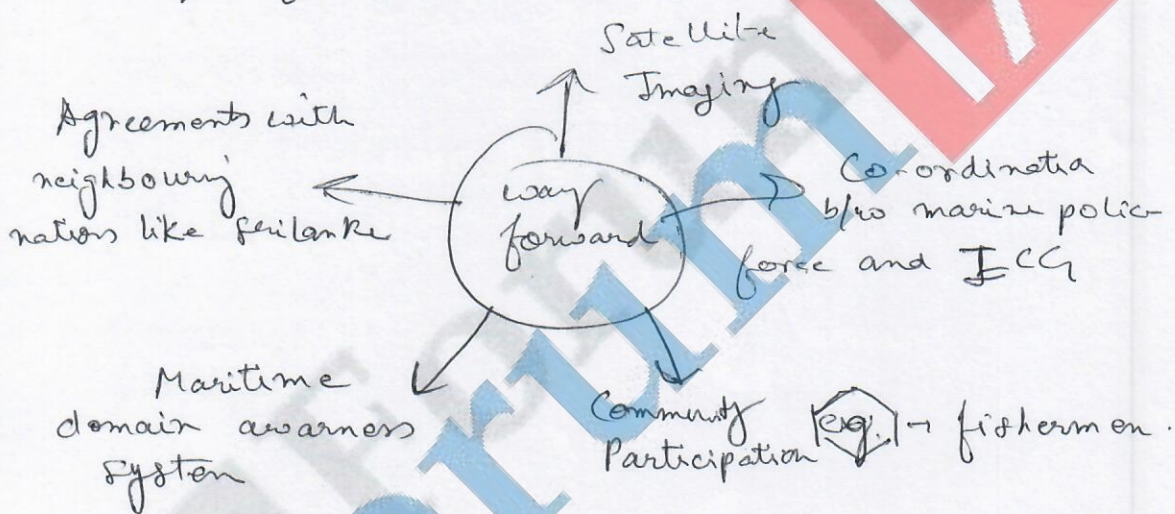 Satellite
Imaging
Agreements with
neighbouring
nations like Srilanka
way
forward
Co-ordination
b/w marine police
force and ICG
Maritime
domain awarness
system
Community
Participation eg. → fishermen.